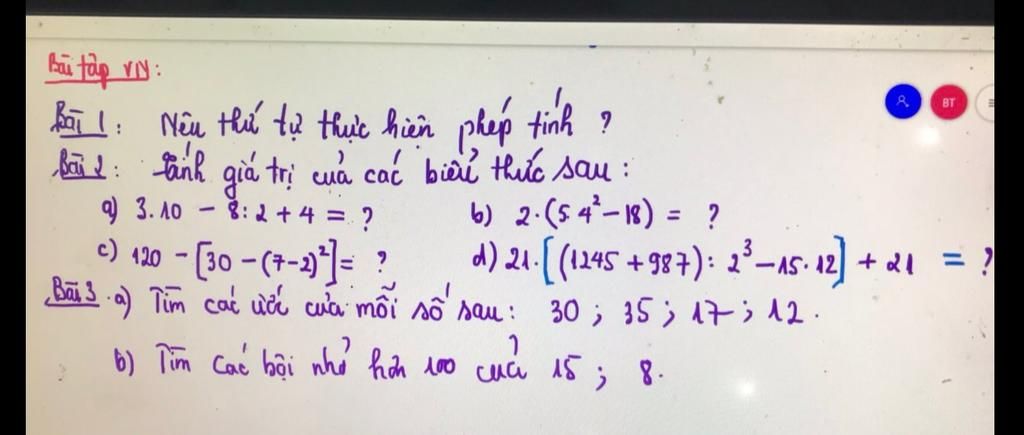 Bài tập VN:
BT
Bài 1: Nêu thứ tự thực hiện phép tính ?
Bài 2: Tính giá trị của các biểu thức sau:
a) 3.10 - 8:2 + 4 = ? b) 2.(5.4² - 18) = ?
c) 120 - [30 - (7-2)²] = ? d) 21.[(1245 + 987): 2³ - 15.12] + 21 = ?
Bài 3. a) Tìm các ước của mỗi số sau: 30 ; 35 ; 17 ; 12.
b) Tìm các bội nhỏ hơn 100 của 15 ; 8.